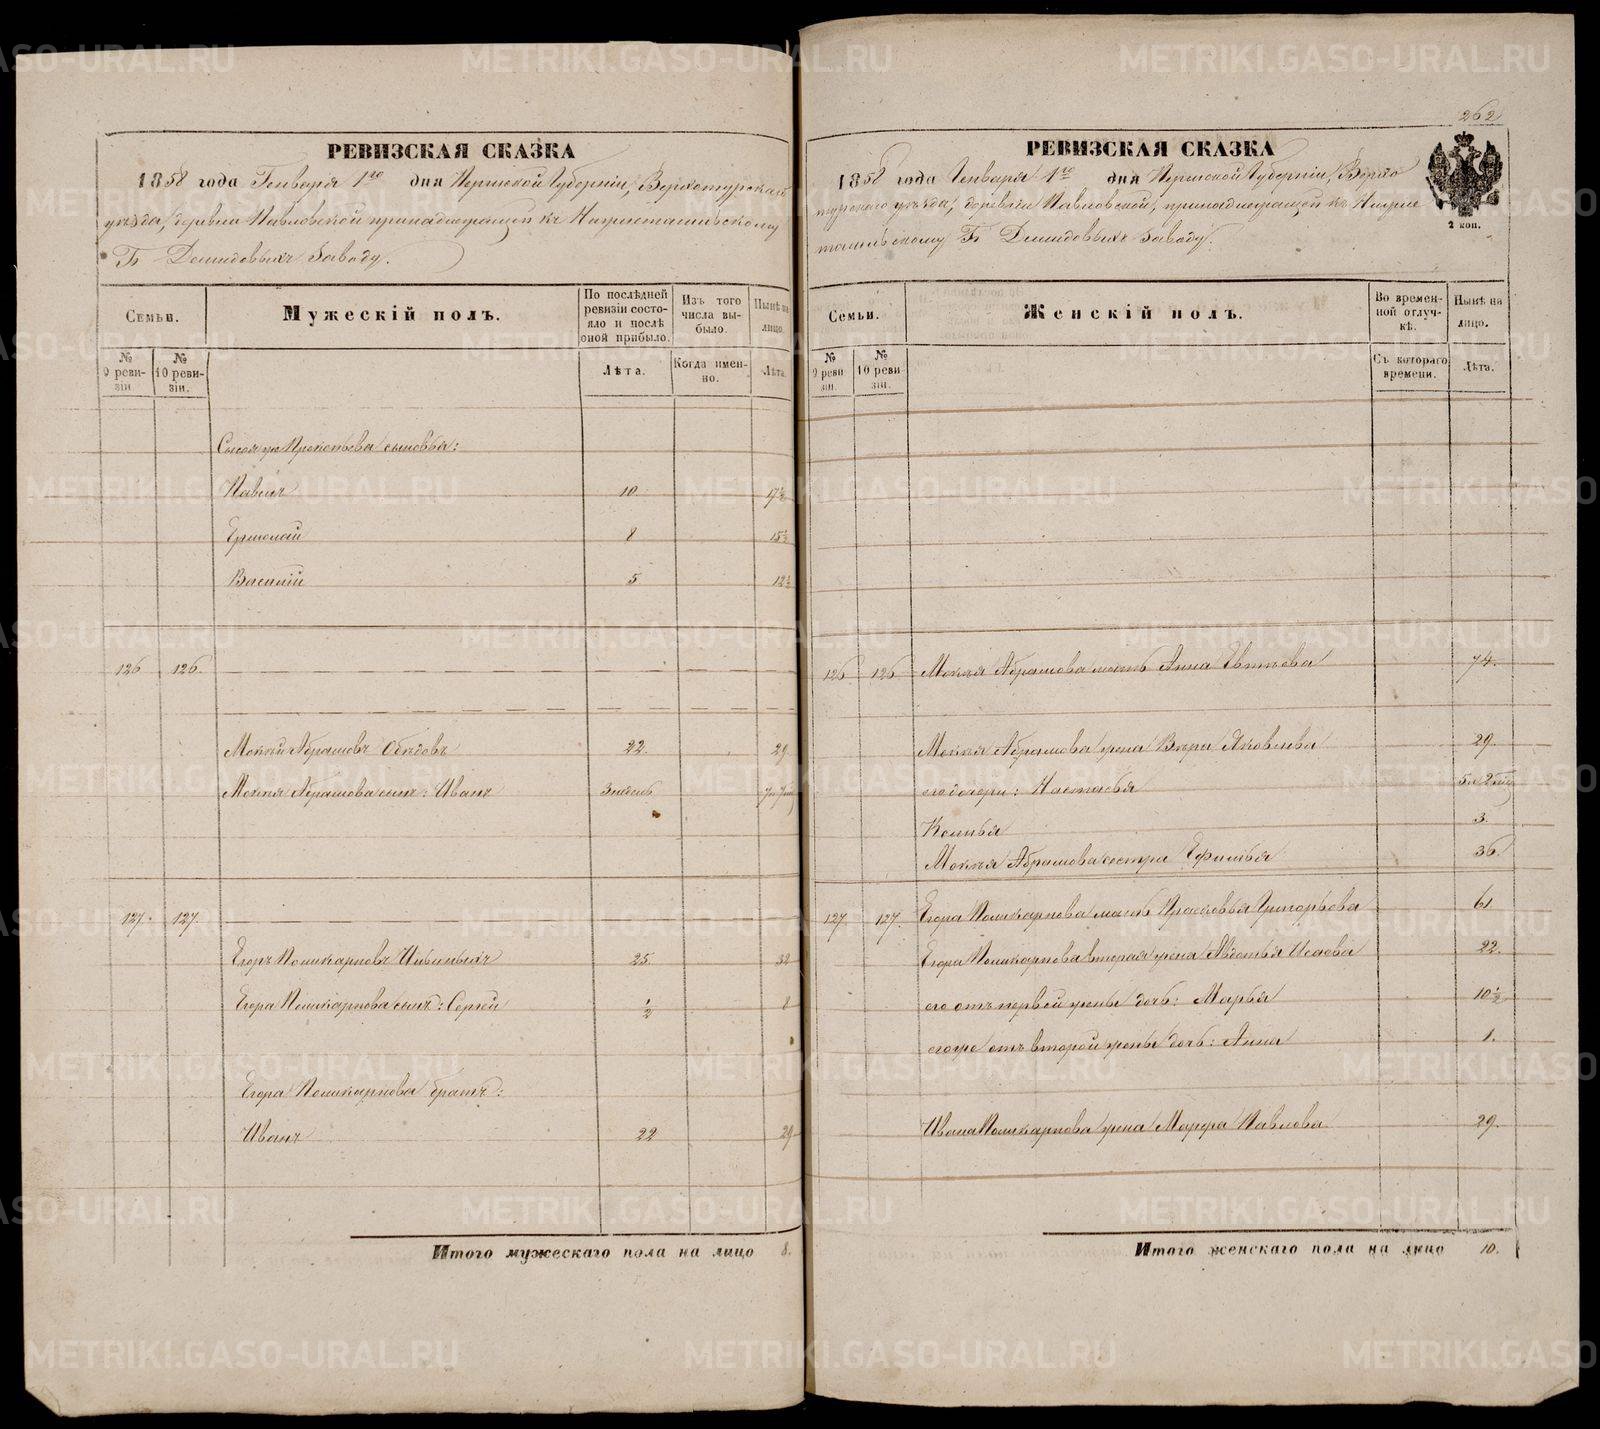 262
РЕВИЗСКАЯ СКАЗКА
1858 года Генваря 1го дня Пермской Губерніи, Верхотурскаго
уѣзда, деревни Павловской принадлежащей къ Нижнетагильскому
Гг Демидовыхъ Заводу.
Семьи.
Мужескій полъ.
По послѣдней ревизіи состояло и послѣ оной прибыло.
Изъ того числа выбыло.
Нынѣ на лицо.
№ 9 ревизіи.
№ 10 ревизіи.
Лѣта.
Когда именно.
Лѣта.
Прокопьева сыновья:
Павелъ 10 17½
Ермолай 8 15½
Василій 5 12½
126 126.
Мокѣй Абрамовъ 22. 29
Мокѣя Абрамова сынъ: Иванъ 3 недѣль
127. 127.
Егоръ Поликарповъ 25. 32
Егора Поликарпова сынъ: Сергѣй ½ 8
Егора Поликарпова братъ:
Иванъ 22 29
Итого мужескаго пола на лицо 8.
РЕВИЗСКАЯ СКАЗКА
2 коп.
1858 года Генваря 1го дня Пермской Губерніи, Верхо
турскаго уѣзда, деревни Павловской, принадлежащей къ Нижне
тагильскому Гг Демидовыхъ Заводу.
Семьи.
Женскій полъ.
Во временной отлучкѣ.
Нынѣ на лицо.
№ 9 ревизіи.
№ 10 ревизіи.
Съ котораго времени.
Лѣта.
126 126 Мокѣя Абрамова мать Анна 74.
Мокѣя Абрамова жена Вѣра Яковлева 29.
его дочери: Настасья
3.
Мокѣя Абрамова сестра Ефимья 36.
127. 127. Егора Поликарпова мать Прасковья Григорьева 61
Егора Поликарпова вторая жена Авдотья Исаева 22.
его отъ первой жены дочь: Марья 10½
его же отъ второй жены дочь: Анна 1.
Ивана Поликарпова жена Марфа Павлова 29.
Итого женскаго пола на лицо 10.
METRIKI.GASO-URAL.RU